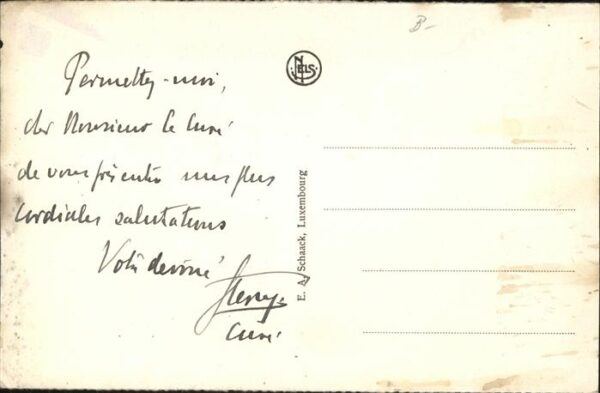 Permettez-moi,
cher Monsieur le Curé
de vous présenter mes plus
cordiales salutations
Votre dévoué
Curé
NELS
E. A. Schaack, Luxembourg
B-